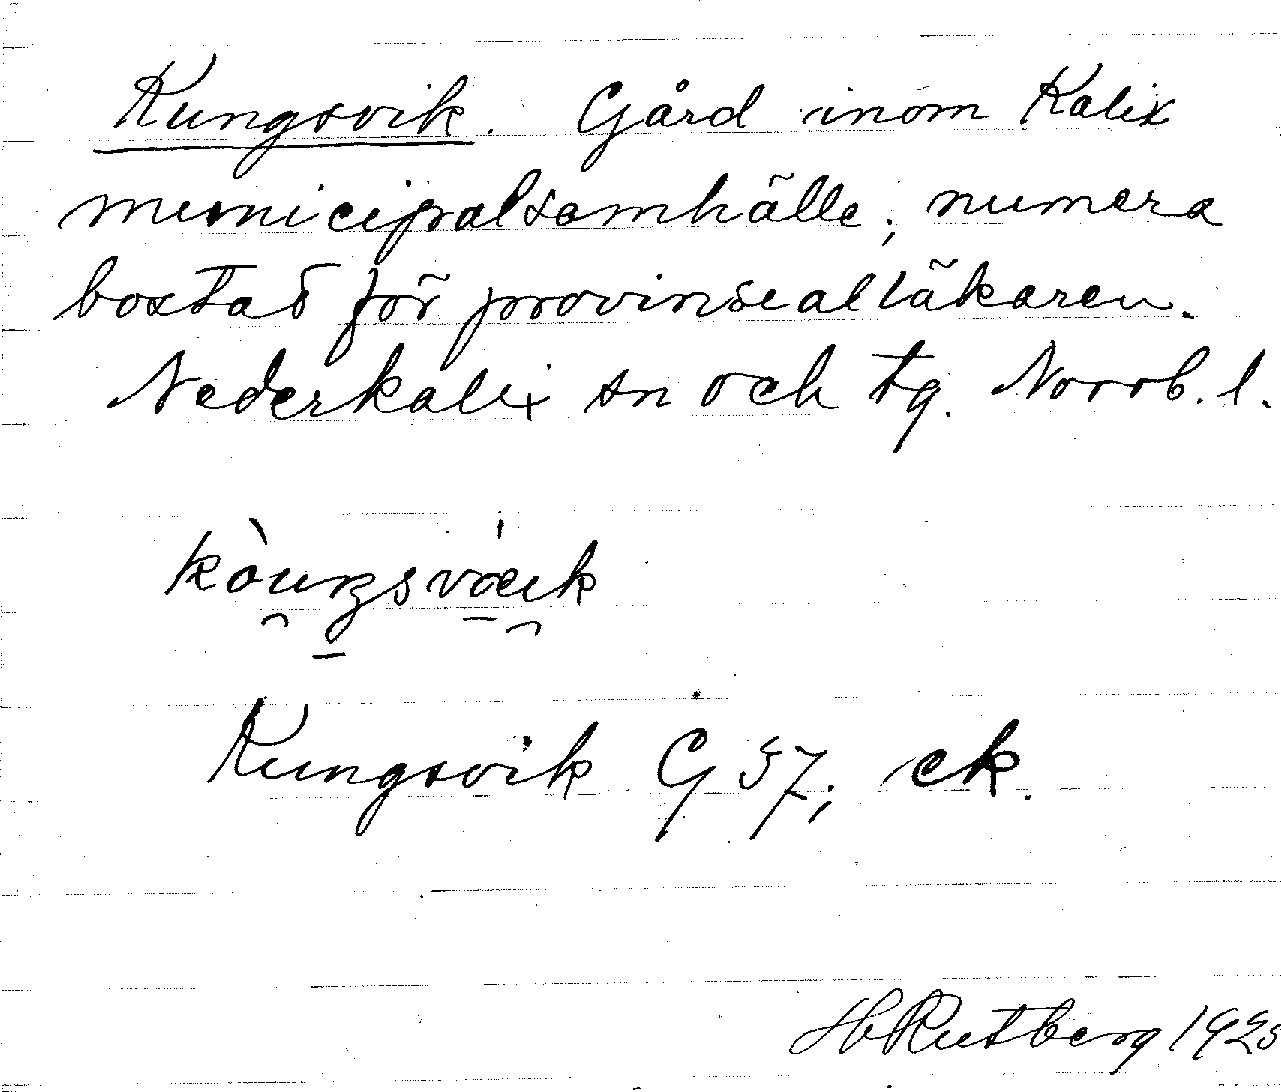 Kungsvik. Gård inom Kalix
municipalsamhälle; numera
bostad för provinsealläkaren.
Nederkalix sn och tg. Norrb. l.
Kungsvik G 57; ek.
H Rutberg 1925